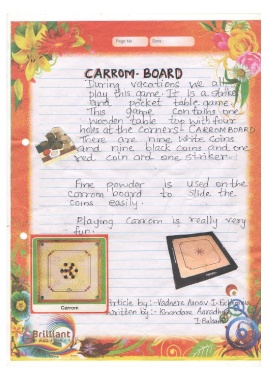 Page No. Date:
CARROM-BOARD
During vacations we all
play this game. It is a strike
and pocket table game.
This game contains one
wooden table top with four
holes at the corners CARROMBOARD
There are nine white coins
and nine black coins and one
red coin and one striker.
Fine powder is used on the
carrom board to slide the
coins easily.
Playing carrom is really very
fun.
Carrom
Article by:- Vadnere Aarav I-
Written by:- Khandare
Brilliant
6